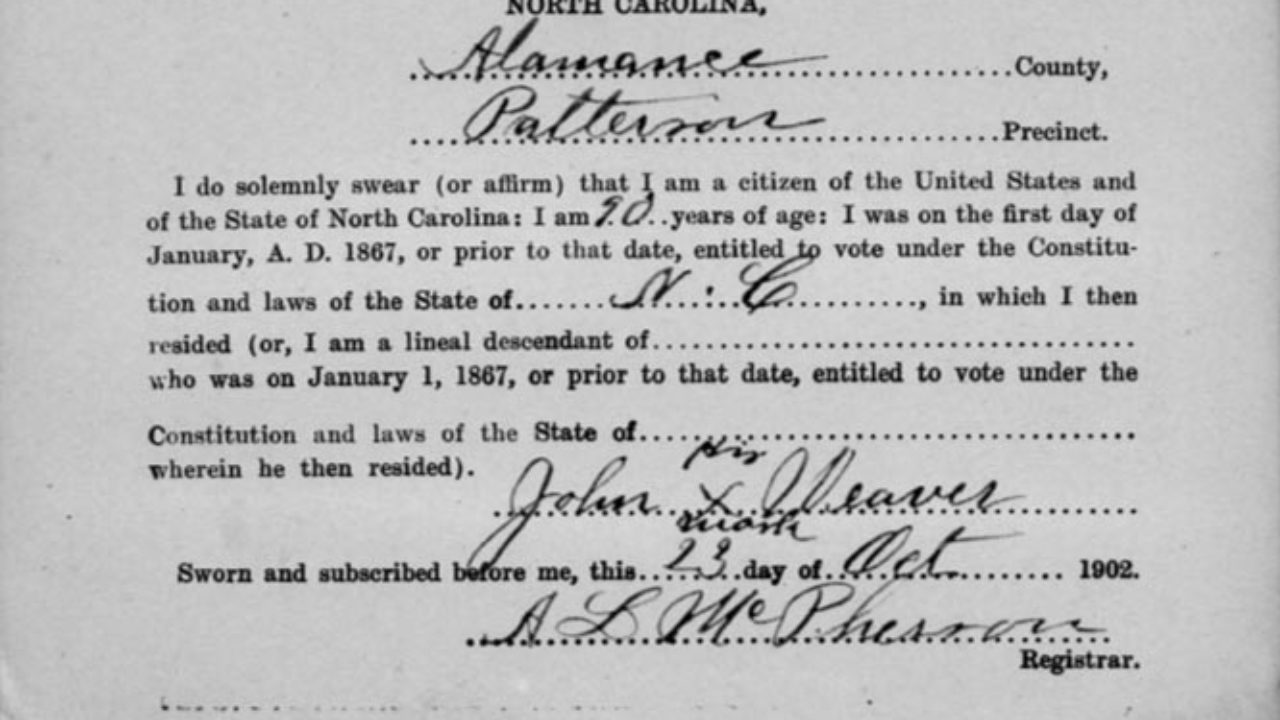 NORTH CAROLINA,
Alamance County,
Patterson Precinct.
I do solemnly swear (or affirm) that I am a citizen of the United States and
of the State of North Carolina: I am 90 years of age: I was on the first day of
January, A. D. 1867, or prior to that date, entitled to vote under the Constitu-
tion and laws of the State of N. C, in which I then
resided (or, I am a lineal descendant of
who was on January 1, 1867, or prior to that date, entitled to vote under the
Constitution and laws of the State of
his
wherein he then resided).
John X Weaver
mark
Sworn and subscribed before me, this 23 day of Oct 1902.
A L McPherson
Registrar.